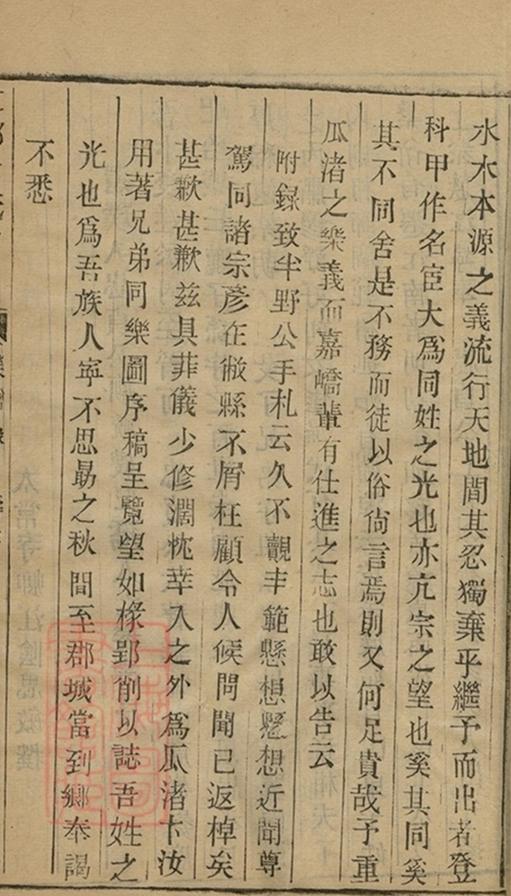 水木本源之義流行天地間其忍獨棄乎繼予而出者登
科甲作名宦大爲同姓之光也亦亢宗之望也奚其同奚
其不同舍是不務而徒以俗尙言焉則又何足貴哉予重
瓜渚之樂義而嘉嶠輩有仕進之志也敢以告云
附錄致半野公手札云久不覿丰範懸想懸想近聞尊
駕同諸宗彥在敝縣不屑枉顧令人候問聞已返棹矣
甚歉甚歉兹具菲儀少修濶忱幸入之外爲瓜渚卞汝
用著兄弟同樂圖序稿呈覽望如椽郢削以誌吾姓之
光也爲吾族人寧不思勗之秋間至郡城當到鄉奉謁
不悉